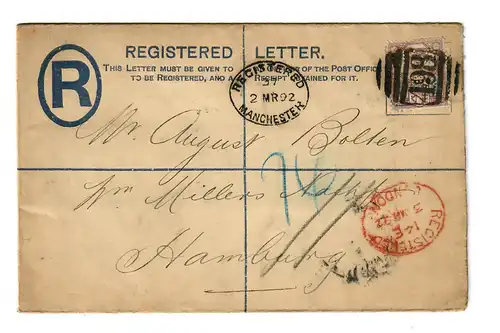 REGISTERED LETTER.
THIS LETTER MUST BE GIVEN TO AN OFFICER OF THE POST OFFICE
TO BE REGISTERED, AND A RECEIPT OBTAINED FOR IT.
R
REGISTERED
57
2 MR 92
MANCHESTER
498
Mr. August Bolten
Wm Millers Nachf
Hamburg
74
REGISTERED
14 E
3 MR 92
LONDON